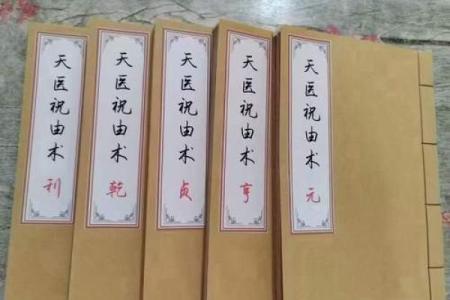 天医祝由术 利
天医祝由术 乾
天医祝由术 贞
天医祝由术 亨
天医祝由术 元